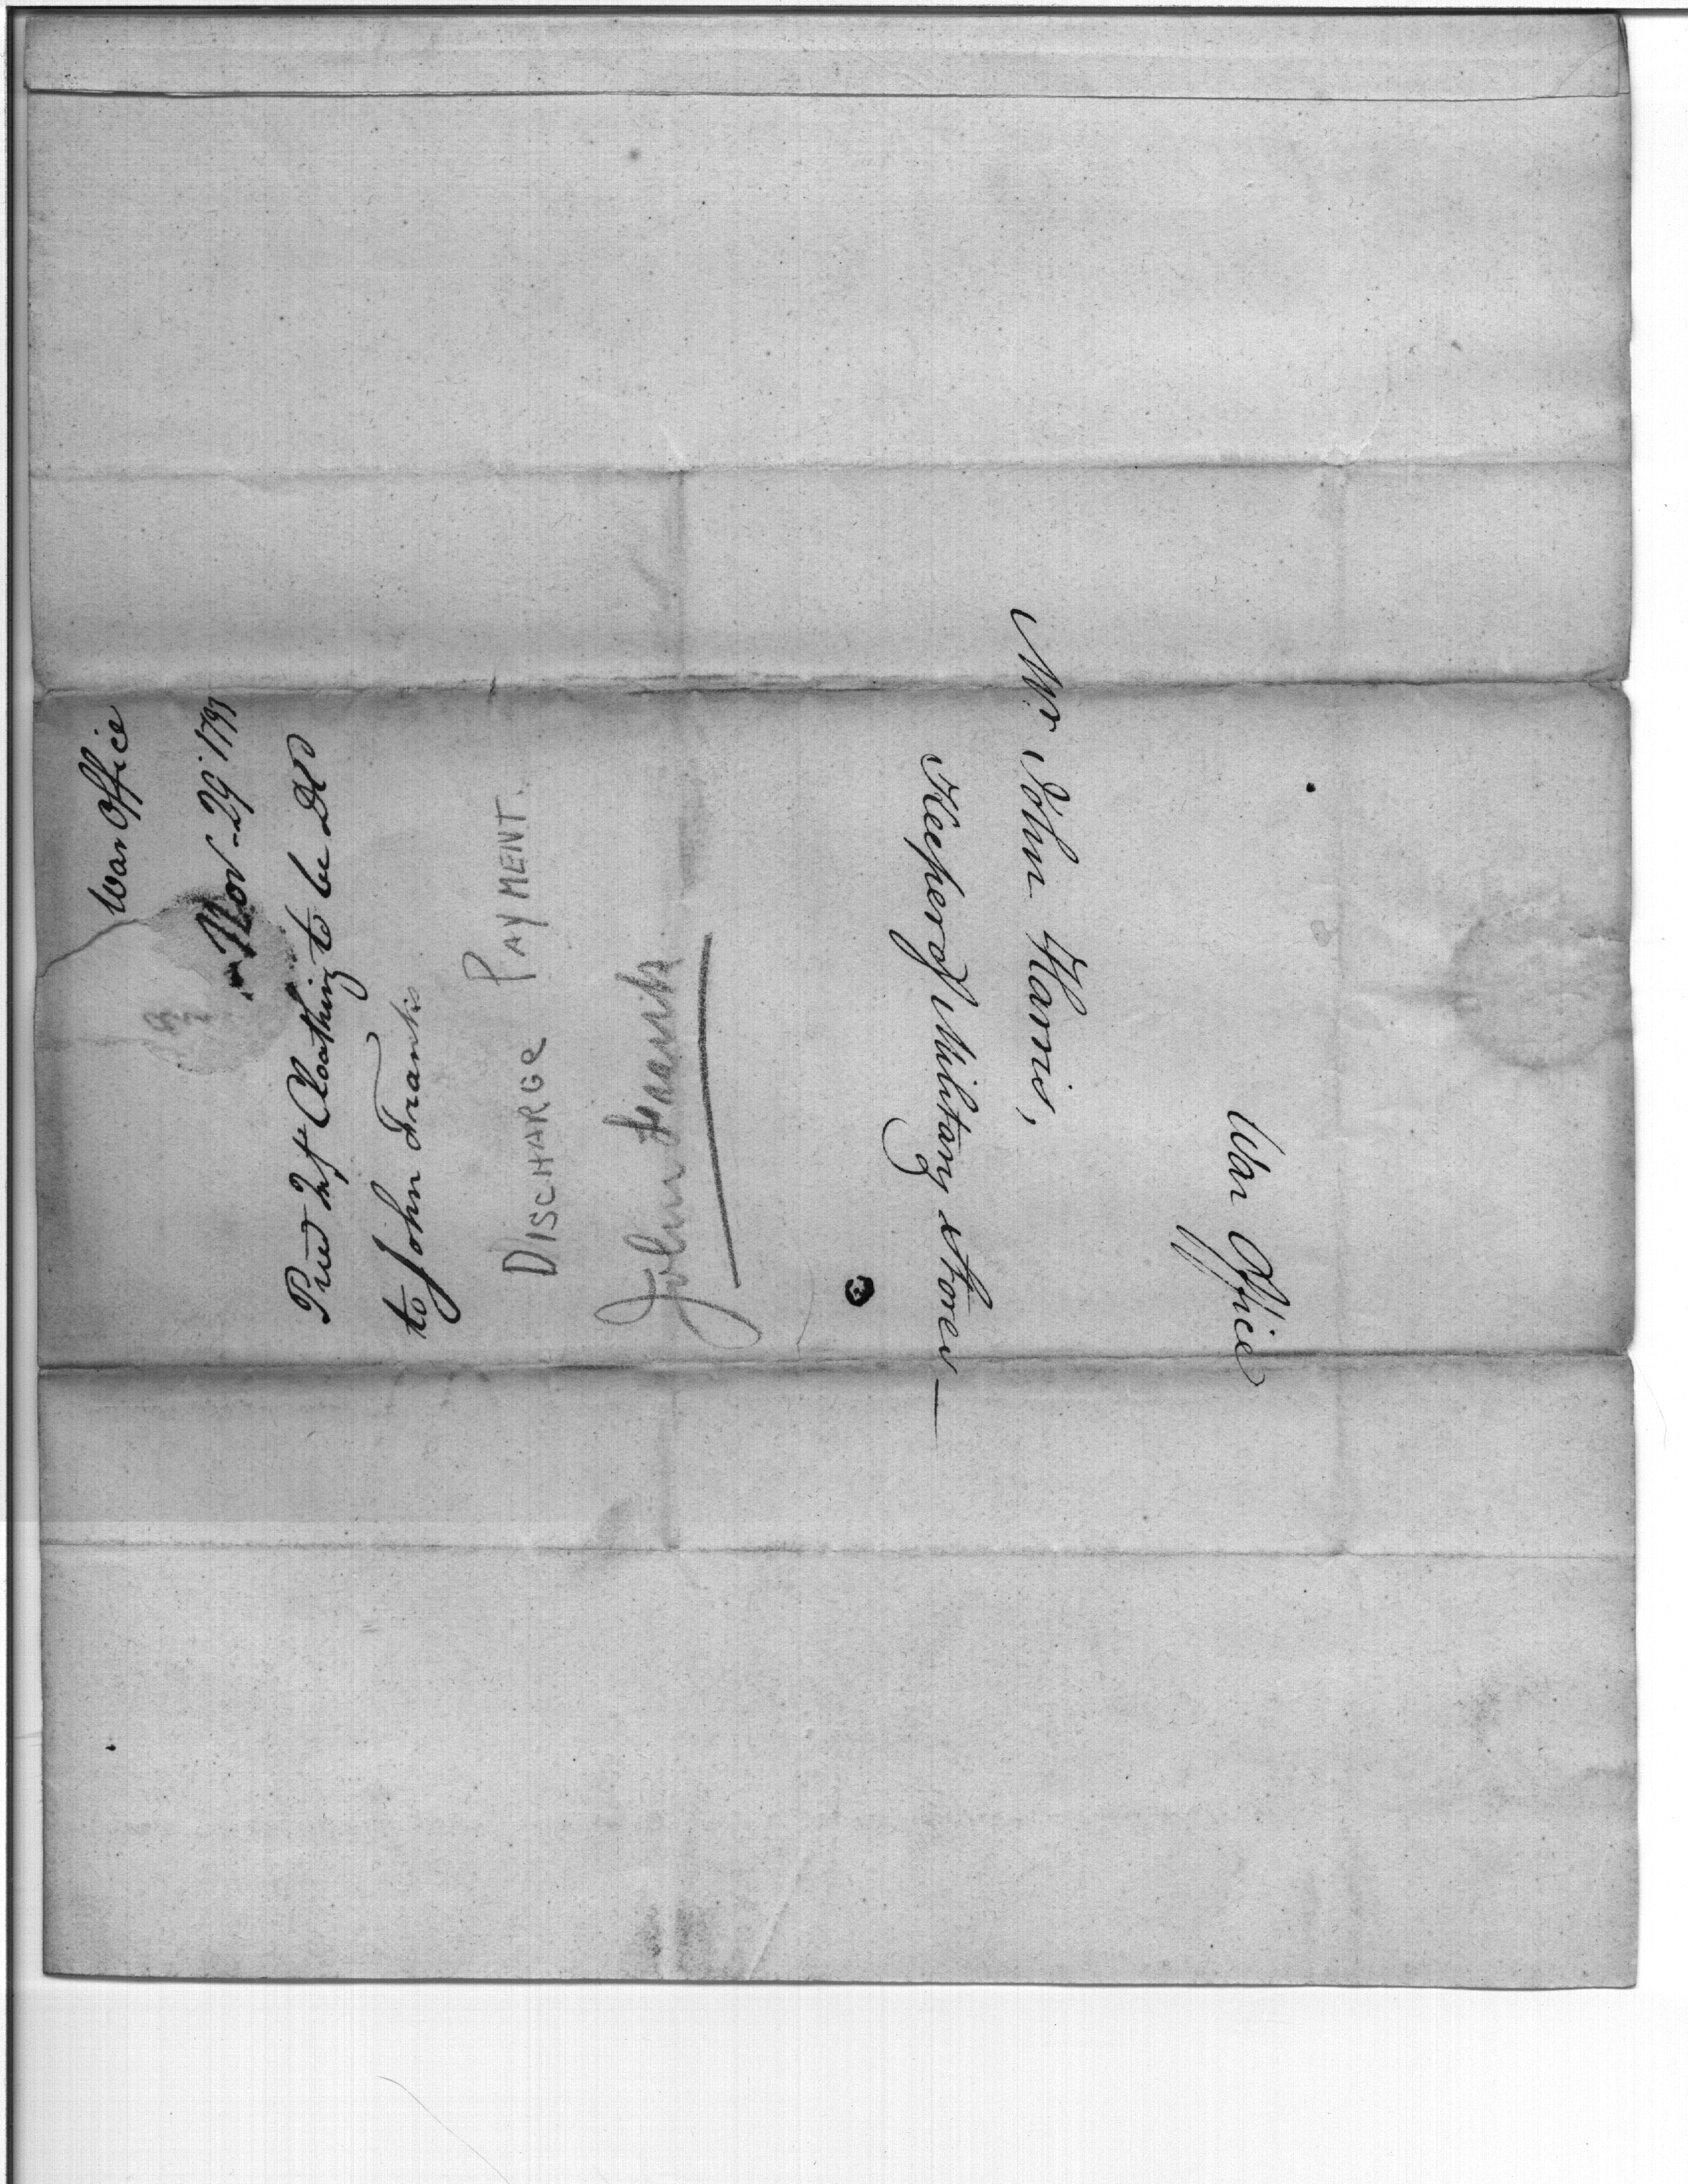 War Office
Nov - 29 1793
Cloathing to be
to John Franks
DISCHARGE PAYMENT.
John Franks
Mr John Harris,
Keeper of Military Stores —
War Office